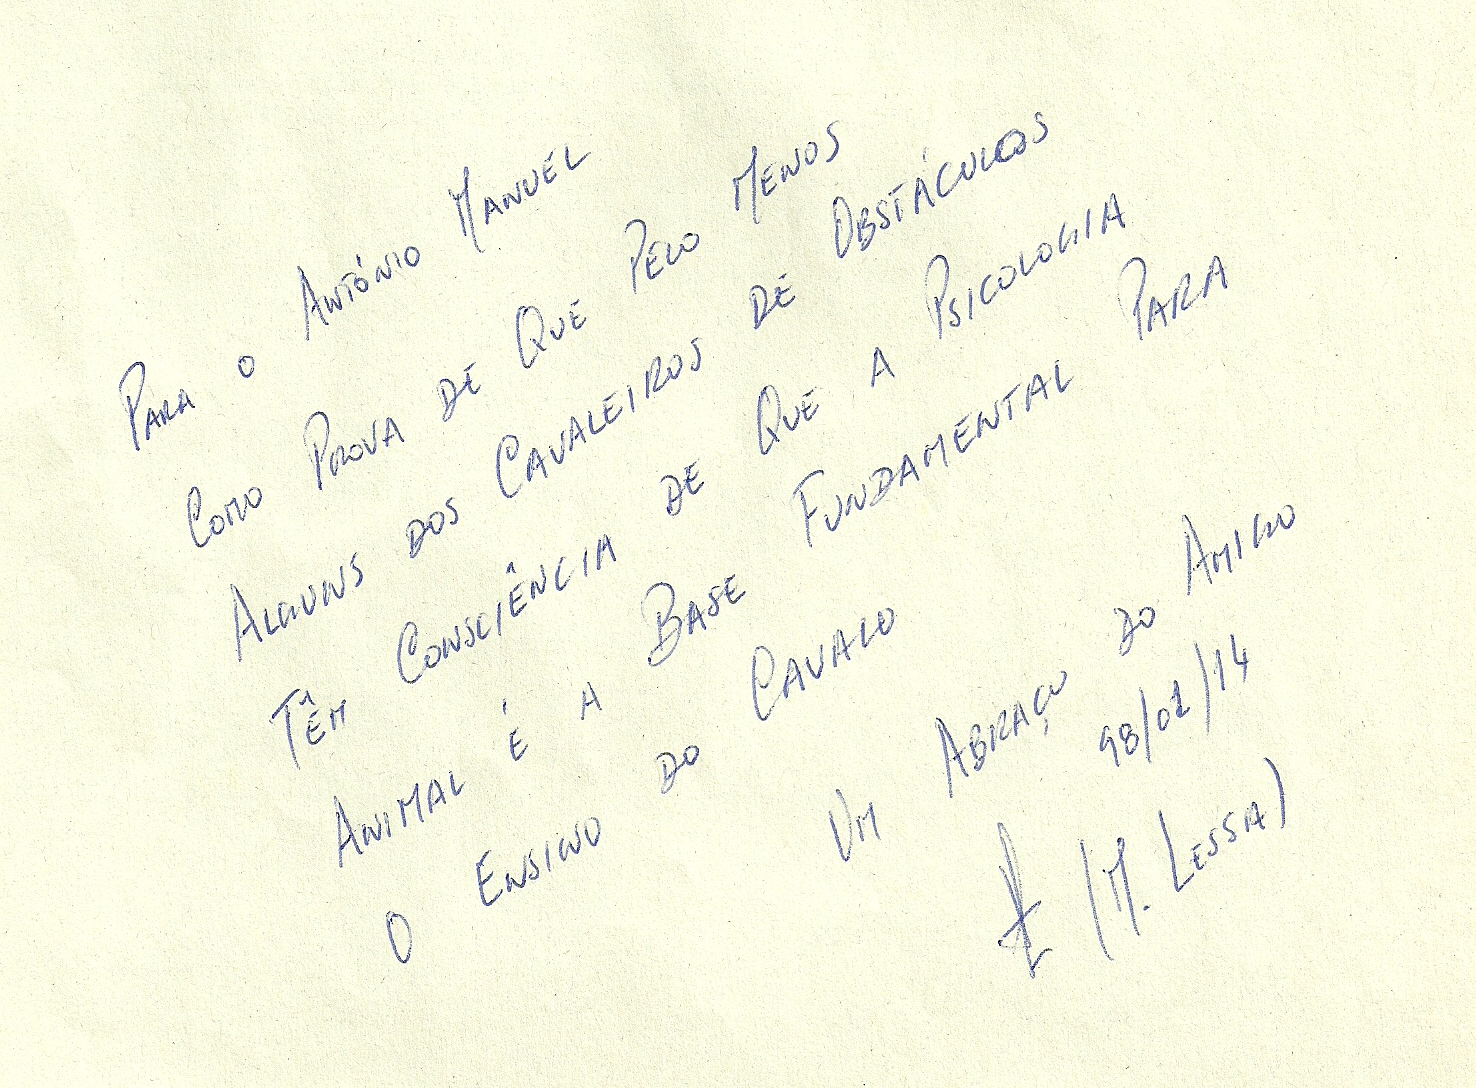 Para o António Manuel
Como Prova de Que Pelo Menos
Alguns dos Cavaleiros de Obstáculos
Têm Consciência de Que a Psicologia
Animal é a Base Fundamental Para
O Ensino do Cavalo
Um Abraço do Amigo
98/02/14
(M. Lessa)